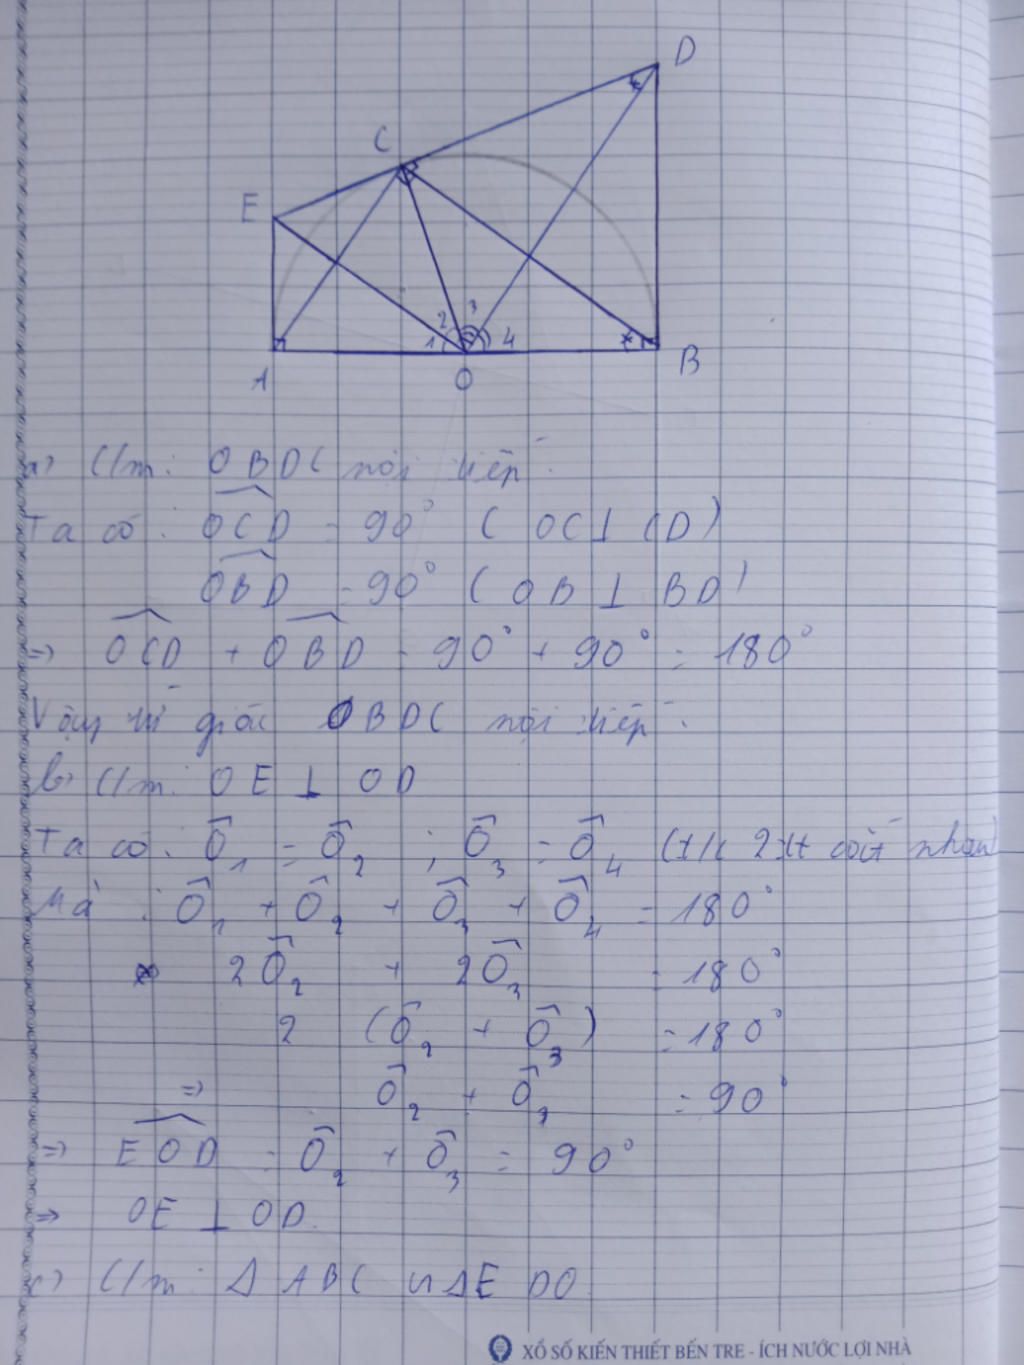 D
C
E
2 3
1 4
A O B
a) C/m: OBDC nội tiếp.
Ta có: OCD = 90° ( OC⊥ CD)
OBD = 90° ( OB ⊥ BD)
=> OCD + OBD = 90° + 90° = 180°
Vậy tứ giác OBDC nội tiếp.
b) C/m: OE ⊥ OD
Ta có: Ô₁ = Ô₂ ; Ô₃ = Ô₄ (t/c 2 tt cắt nhau)
Mà: Ô₁ + Ô₂ + Ô₃ + Ô₄ = 180°
2Ô₂ + 2Ô₃ = 180°
2 (Ô₂ + Ô₃) = 180°
=> Ô₂ + Ô₃ = 90°
=> EOD = Ô₂ + Ô₃ = 90°
=> OE ⊥ OD.
c) C/m: Δ ABC ∽ ΔEDO.
XỔ SỐ KIẾN THIẾT BẾN TRE - ÍCH NƯỚC LỢI NHÀ